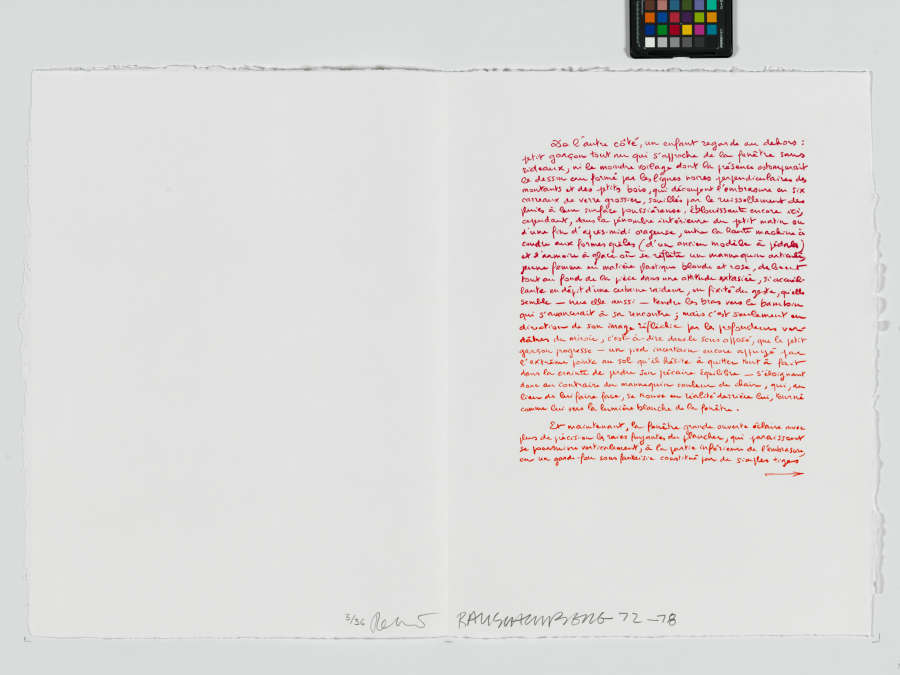 De l'autre côté, un enfant regarde au dehors :
petit garçon tout nu qui s'approche de la fenêtre sans
rideaux, ni le moindre voilage dont la présence estomperait
le dessin en formé par les lignes noires perpendiculaires des
montants et des petits bois, qui découpent l'embrasure en six
carreaux de verre grossier, souillés par le ruissellement des
pluies à leur surface poussiéreuse, éblouissante encore ici,
cependant, dans la pénombre intérieure du petit matin ou
d'une fin d'après-midi orageuse, entre la haute machine à
coudre aux formes grêles (d'un ancien modèle à pédale)
et l'armoire à glace où se reflète un mannequin articulé,
jeune femme en matière plastique blonde et rose, debout
tout au fond de la pièce dans une attitude extasiée, si accueil-
lante en dépit d'une certaine raideur, en fixité du geste, qu'elle
semble — nue elle aussi — tendre les bras vers le bambin
qui s'avancerait à sa rencontre ; mais c'est seulement en
direction de son image réfléchie par les profondeurs ver-
dâtres du miroir, c'est-à-dire dans le sens opposé, que le petit
garçon progresse — un pied incertain encore appuyé par
l'extrême pointe au sol qu'il hésite à quitter tout à fait
dans la crainte de perdre son précaire équilibre — s'éloignant
donc au contraire du mannequin couleur de chair, qui, au
lieu de lui faire face, se trouve en réalité derrière lui, tourné
comme lui vers la lumière blanche de la fenêtre.
Et maintenant, la fenêtre grande ouverte éclaire avec
plus de précision les raies fuyantes du plancher, qui paraissent
se poursuivre verticalement, à la partie inférieure de l'embrasure,
en un garde-fou sans fantaisie constitué par de simples tiges
3/36 RAUSCHENBERG 72-78